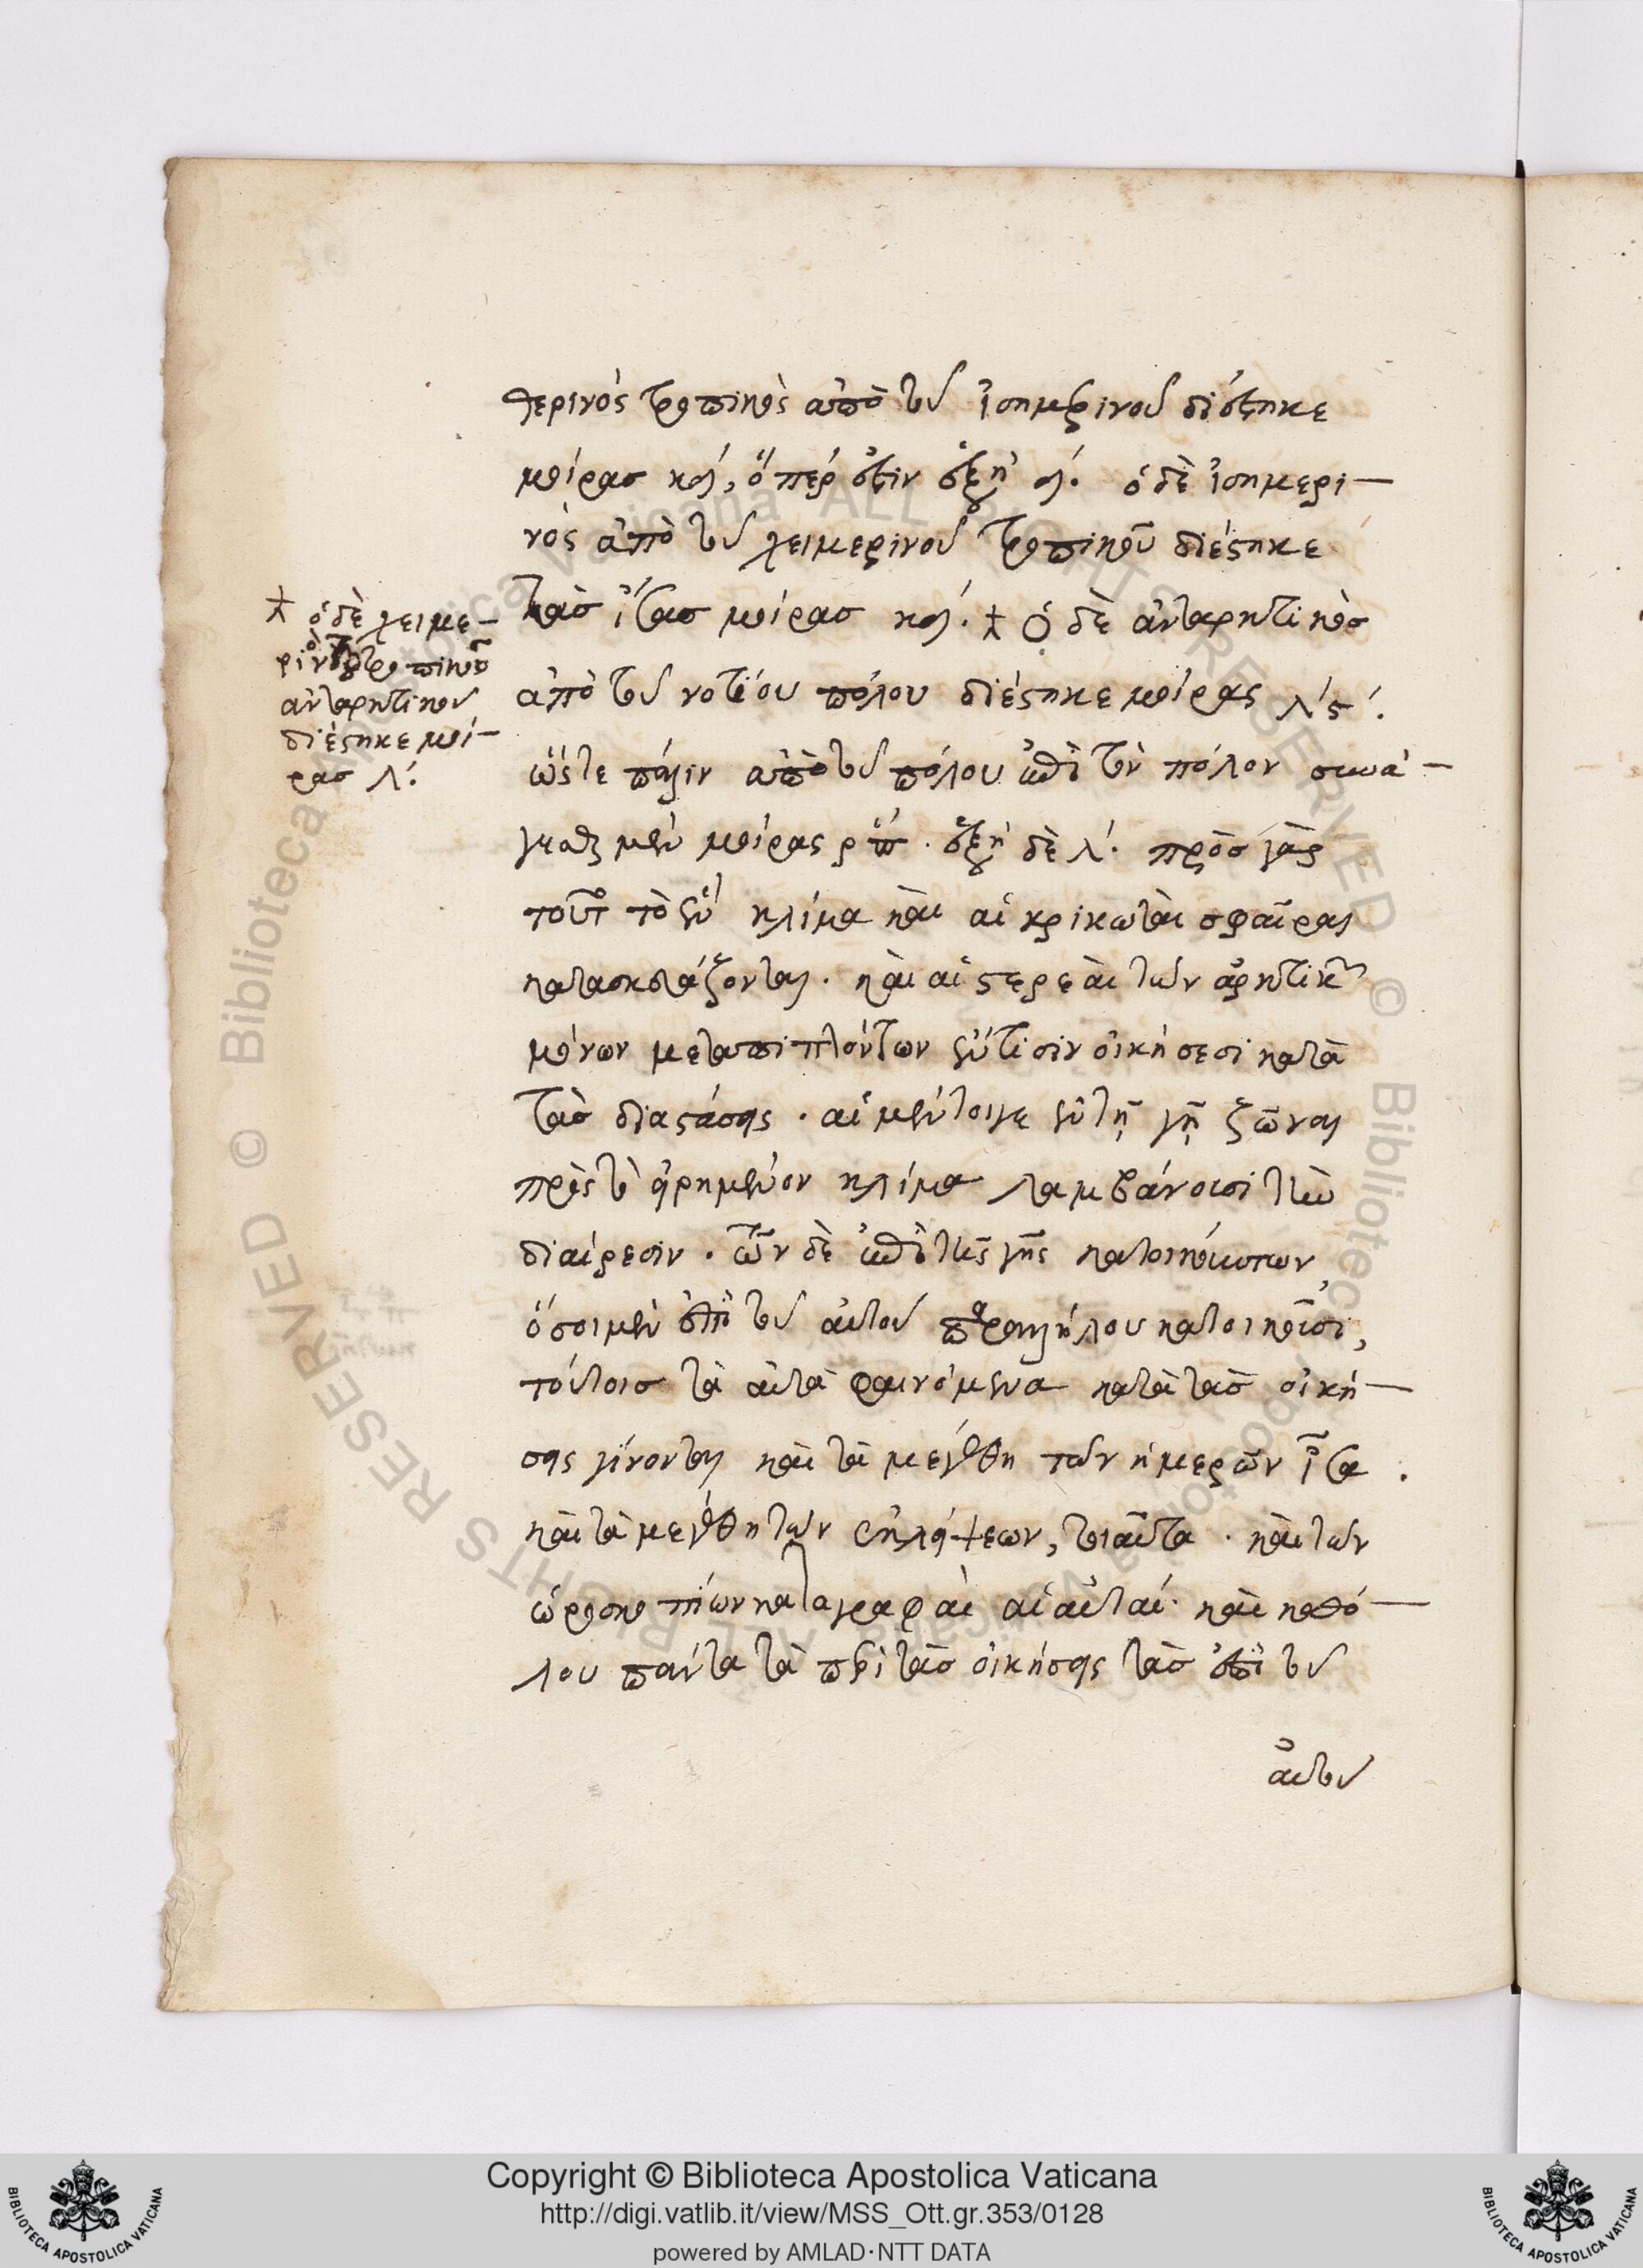 θερινὸς τροπικὸς ἀπὸ τοῦ ἰσημερινοῦ διέστηκε
μοίρας κδ´, ὅπερ ἐστὶν ἑξη´ δ´. ὁ δὲ ἰσημερι-
νὸς ἀπὸ τοῦ χειμερινοῦ τροπικοῦ διέστηκε
τὰς ἴσας μοίρας κδ´. ὁ δὲ ἀνταρκτικὸς
ἀπὸ τοῦ νοτίου πόλου διέστηκε μοίρας λς´.
ὥστε πάλιν ἀπὸ τοῦ πόλου ἐπὶ τὸν πόλον συνά-
γεσθαι μὲν μοίρας ρπ´. ἑξη´ δὲ λ´. πρὸς γὰρ
τοῦτο τὸ ἓν κλίμα καὶ αἱ κρικωταὶ σφαῖραι
κατασκευάζονται. καὶ αἱ στερεαὶ τῶν ἀρκτικῶν
μόνων μεταπιπτόντων ἔν τισιν οἰκήσεσι κατὰ
τὰς διαστάσεις. αἱ μέντοιγε ἐν τῇ γῇ ζῶναι
πρὸς τὸ εἰρημένον κλίμα λαμβάνουσι τὴν
διαίρεσιν. τῶν δὲ ἐπὶ τῆς γῆς κατοικούντων,
ὅσοι μὲν ἐπὶ τοῦ αὐτοῦ παραλλήλου κατοικοῦσι,
τούτοις τὰ αὐτὰ φαινόμενα κατὰ τὰς οἰκή-
σεις γίνονται καὶ τὰ μεγέθη τῶν ἡμερῶν ἴσα.
καὶ τὰ μεγέθη τῶν ἐκλείψεων, τοιαῦτα. καὶ τῶν
ὡροσκοπίων καταγραφαὶ αἱ αὐταί. καὶ καθό-
λου πάντα τὰ περὶ τὰς οἰκήσεις τὰς ἐπὶ τοῦ
αὐτοῦ
ὁ δὲ χειμε-
ρινὸς τροπικὸς
ἀνταρκτικοῦ
διέστηκε μοί-
ρας λ´.
Copyright © Biblioteca Apostolica Vaticana
http://digi.vatlib.it/view/MSS_Ott.gr.353/0128
powered by AMLAD·NTT DATA
BIBLIOTECA APOSTOLICA VATICANA
BIBLIOTECA APOSTOLICA VATICANA